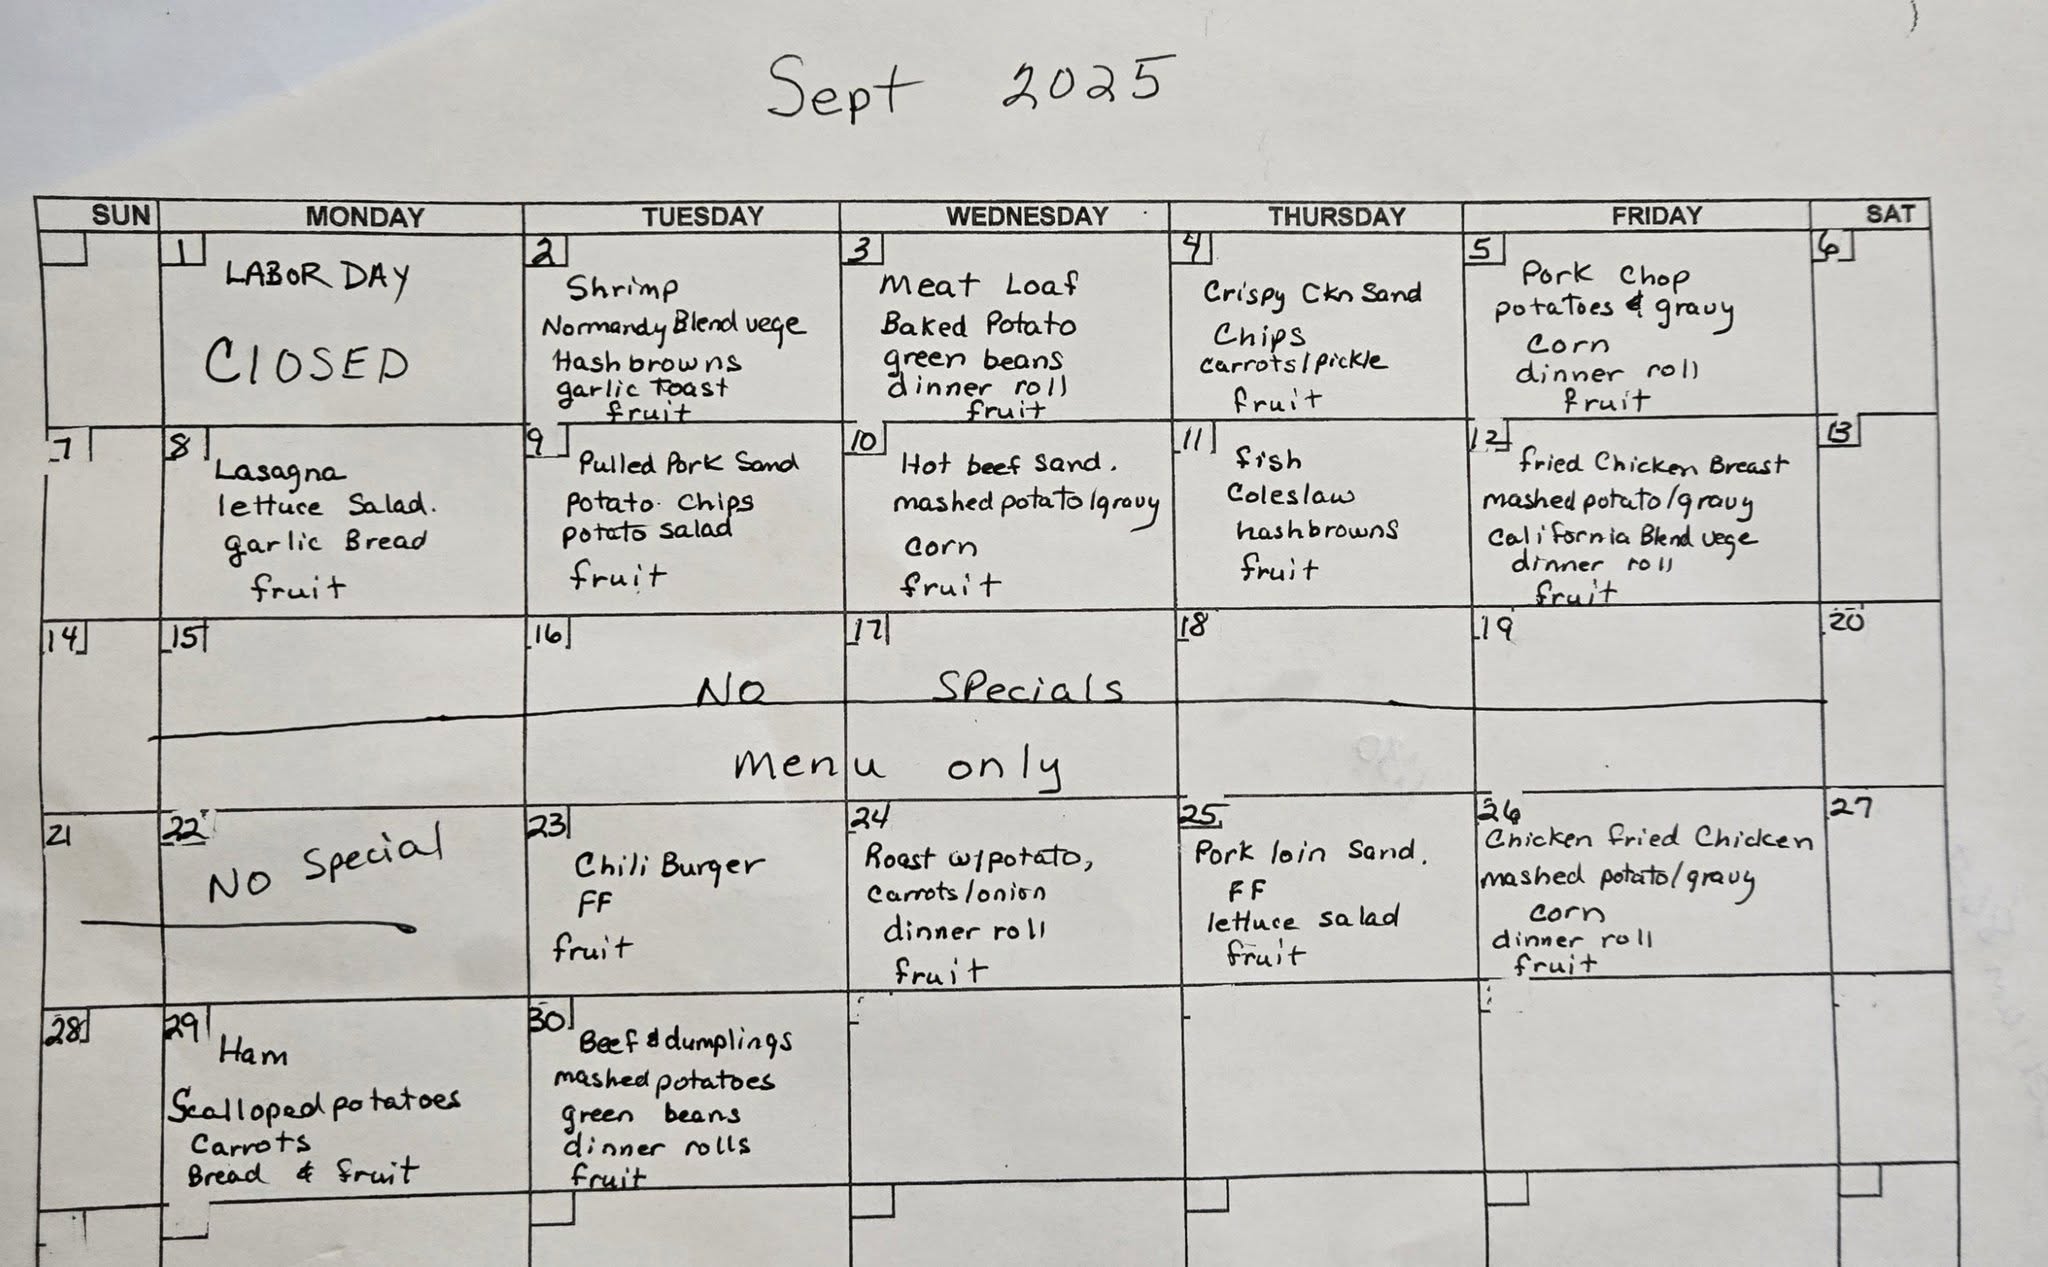 Sept 2025
SUN MONDAY TUESDAY WEDNESDAY THURSDAY FRIDAY SAT
1
LABOR DAY
ClOSED
2
Shrimp
Normandy Blend vege
Hashbrowns
garlic Toast
fruit
3
Meat Loaf
Baked Potato
green beans
dinner roll
fruit
4
Crispy Ckn Sand
Chips
carrots/pickle
fruit
5
Pork Chop
potatoes & gravy
corn
dinner roll
fruit
6
7
8
Lasagna
lettuce Salad.
garlic Bread
fruit
9
Pulled Pork Sand
Potato Chips
potato salad
fruit
10
Hot beef sand.
mashed potato/gravy
corn
fruit
11
fish
Coleslaw
hashbrowns
fruit
12
fried Chicken Breast
mashed potato/gravy
California Blend vege
dinner roll
fruit
13
14
15
16
17
18
19
20
No Specials
menu only
21
22
No Special
23
Chili Burger
FF
fruit
24
Roast w/potato,
carrots/onion
dinner roll
fruit
25
Pork loin Sand.
FF
lettuce salad
fruit
26
Chicken fried Chicken
mashed potato/gravy
corn
dinner roll
fruit
27
28
29
Ham
Scalloped potatoes
Carrots
Bread & fruit
30
Beef & dumplings
mashed potatoes
green beans
dinner rolls
fruit